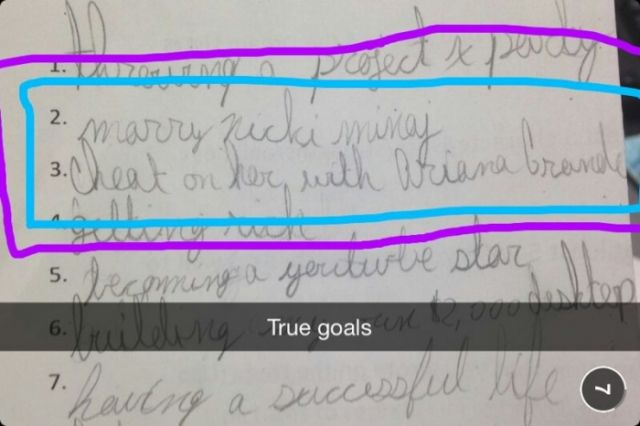 1. throwing a project x party
2. marry nicki minaj
3. Cheat on her, with Ariana Grande
4. getting rich
5. becoming a youtube star
True goals
6. building my own $2,000 desktop
7. having a successful life
7